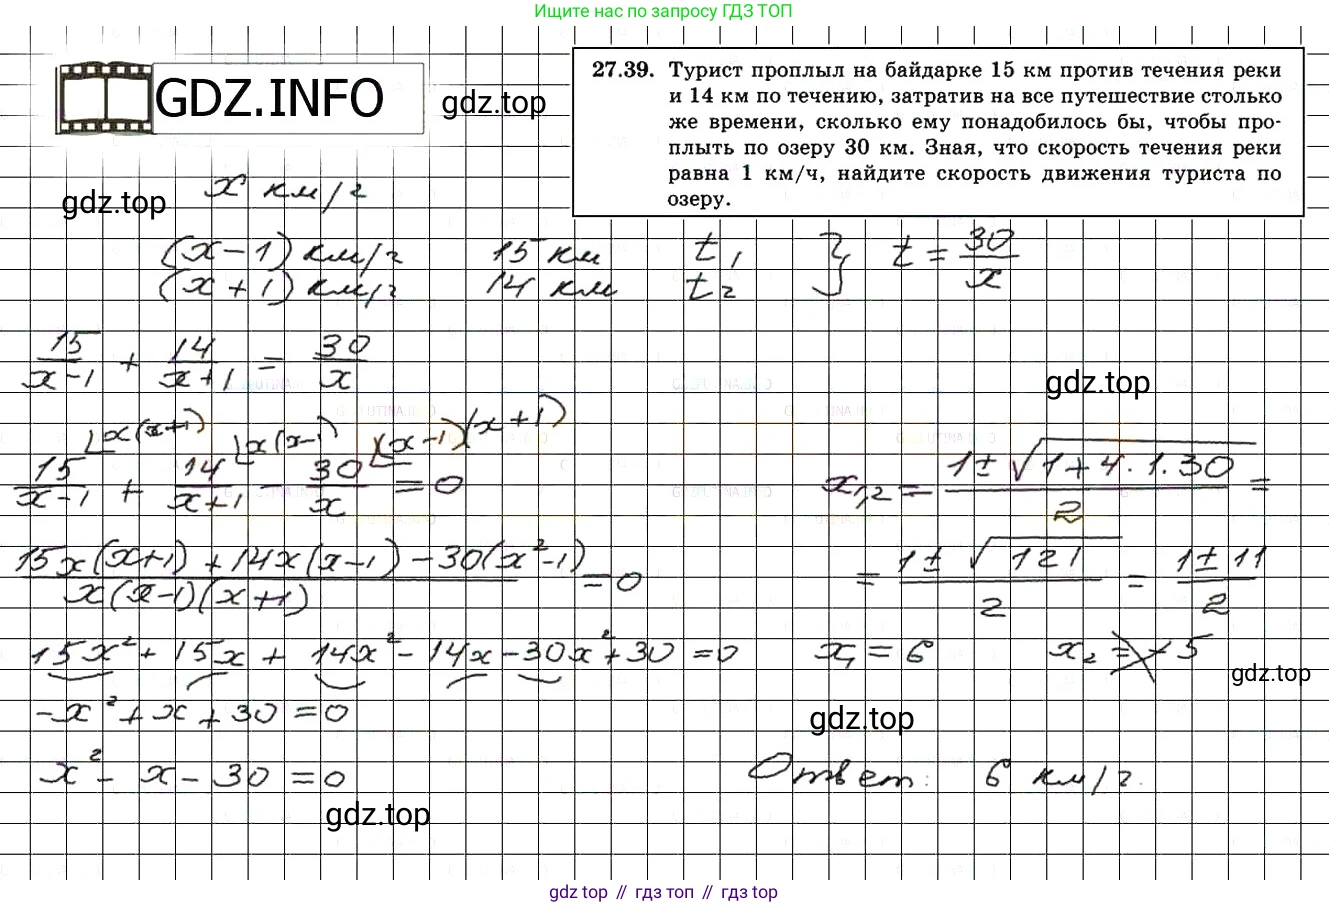 Ищите нас по запросу ГДЗ ТОП
GDZ.INFO
gdz.top
27.39. Турист проплыл на байдарке 15 км против течения реки
и 14 км по течению, затратив на все путешествие столько
же времени, сколько ему понадобилось бы, чтобы про-
плыть по озеру 30 км. Зная, что скорость течения реки
равна 1 км/ч, найдите скорость движения туриста по
озеру.
gdz.top
x км/ч
(x-1) км/ч 15 км t₁ } t = 30/x
(x+1) км/ч 14 км t₂
15/(x-1) + 14/(x+1) = 30/x
gdz.top
15/(x-1) ⌊x(x+1) + 14/(x+1) ⌊x(x-1) - 30/x ⌊(x-1)(x+1) = 0
(15x(x+1) + 14x(x-1) - 30(x²-1))/(x(x-1)(x+1)) = 0
15x² + 15x + 14x² - 14x - 30x² + 30 = 0
-x² + x + 30 = 0
x² - x - 30 = 0
gdz.top
x₁,₂ = (1 ± √(1+4·1·30))/2 =
= (1 ± √121)/2 = (1 ± 11)/2
x₁ = 6 x₂ = -5
gdz.top
gdz.top
Ответ: 6 км/ч.
gdz top // гдз топ // гдз top